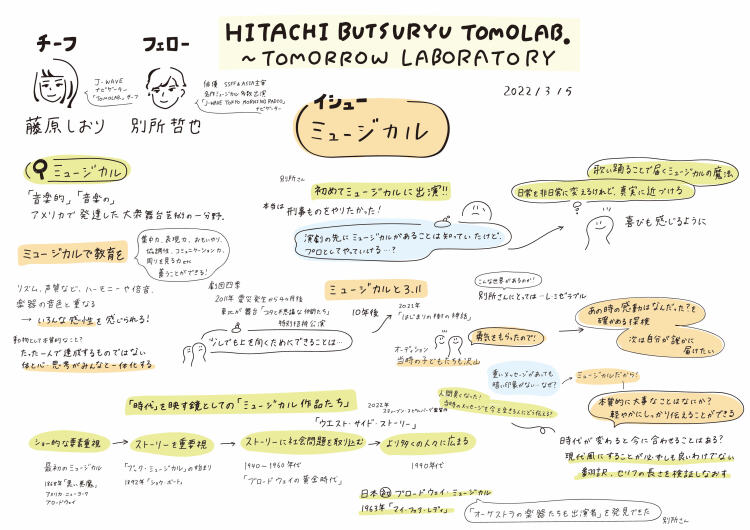 HITACHI BUTSURYU TOMOLAB.
〜TOMORROW LABORATORY
2022/3/15
チーフ
J-WAVE
ナビゲーター
「TOMOLAB.」チーフ
藤原しおり
フェロー
俳優 SSFF & ASIA主宰
名作ミュージカル多数出演
「J-WAVE TOKYO MORNING RADIO」
ナビゲーター
別所哲也
イシュー
ミュージカル
ミュージカル
「音楽的」「音楽の」
アメリカで発達した大衆舞台芸術の一分野。
ミュージカルで教育を
集中力、表現力、おもいやり、
協調性、コミュニケーション力、
周りを見る力 etc
養うことができる!
リズム、声質など、ハーモニーや倍音、
楽器の音色と重なる
→ いろんな感性を感じられる!
動物として本質的なこと?
たった一人で達成するものではない
体と心・思考がみんなと一体化する
別所さん
初めてミュージカルに出演!!
本当は 刑事ものをやりたかった!
演劇の先にミュージカルがあることは知っていたけど、
プロとしてやっていける…?
歌い踊ることで届くミュージカルの魔法
日常を非日常に変えるけれど、真実に近づける
喜びも感じるように
ミュージカルと3.11
劇団四季
2011年 震災発生から4ヶ月後
東北が舞台「ユタと不思議な仲間たち」
特別招待公演
少しでも上を向くためにできることは…
10年後
2021年
「はじまりの樹の神話」
オーディション
当時の子どもたちも沢山
勇気をもらったので!
こんな世界があるのか!
別所さんにとっては…レ・ミゼラブル
あの時の感動はなんだった?を
確かめる探検
次は自分が誰かに
届けたい
重いメッセージがあっても
暗い印象がない…なぜ?
ミュージカルだから!
本質的に大事なことはなにか?
軽やかにしっかり伝えることができる
「時代」を映す鏡としての「ミュージカル作品たち」
2022年
スティーブン・スピルバーグ監督作
「ウエスト・サイド・ストーリー」
人間臭くなった!
当時のメッセージを今を生きる人にどう伝える?
ショー的な要素重視
ストーリーを重要視
ストーリーに社会問題を取り込む
より多くの人々に広まる
最初のミュージカル
1868年「黒い悪魔」
アメリカ・ニューヨーク
ブロードウェイ
「ブック・ミュージカル」の始まり
1892年「ショウ・ボート」
1940〜1960年代
「ブロードウェイの黄金時代」
1990年代
時代が変わると今に合わせることはある?
現代風にすることが必ずしも良いわけでない
翻訳、セリフの長さを検証しなおす
日本初 ブロードウェイ・ミュージカル
1963年「マイ・フェア・レディ」
「オーケストラの楽器たちも出演者」を発見できた
別所さん